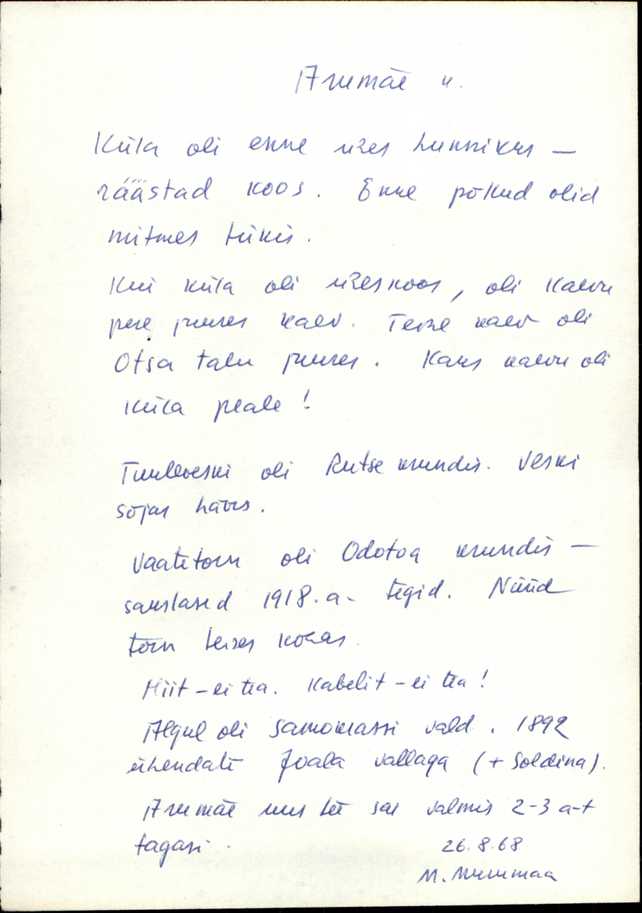 Arumäe k.
Küla oli enne ühes hunnikus —
räästad koos. Enne põllud olid
mitmes tükis.
Kui küla oli ühes koos, oli Kaevu
pere juures kaev. Teine kaev oli
Otsa talu juures. Kaks kaevu oli
küla peale!
Tuuleveski oli Rutse krundis. Veski
sõjas hävis.
Vaatetorn oli Odotoa krundis —
sakslased 1918.a. tegid. Nüüd
torn teises kohas.
Hiit – ei tea. Kabelit – ei tea!
Algul oli Samokrassi vald. 1892
ühendati Joala vallaga (+ Soldina).
Arumäe uus tee sai valmis 2-3 a-t
tagasi.
26.8.68
M. Mummaa